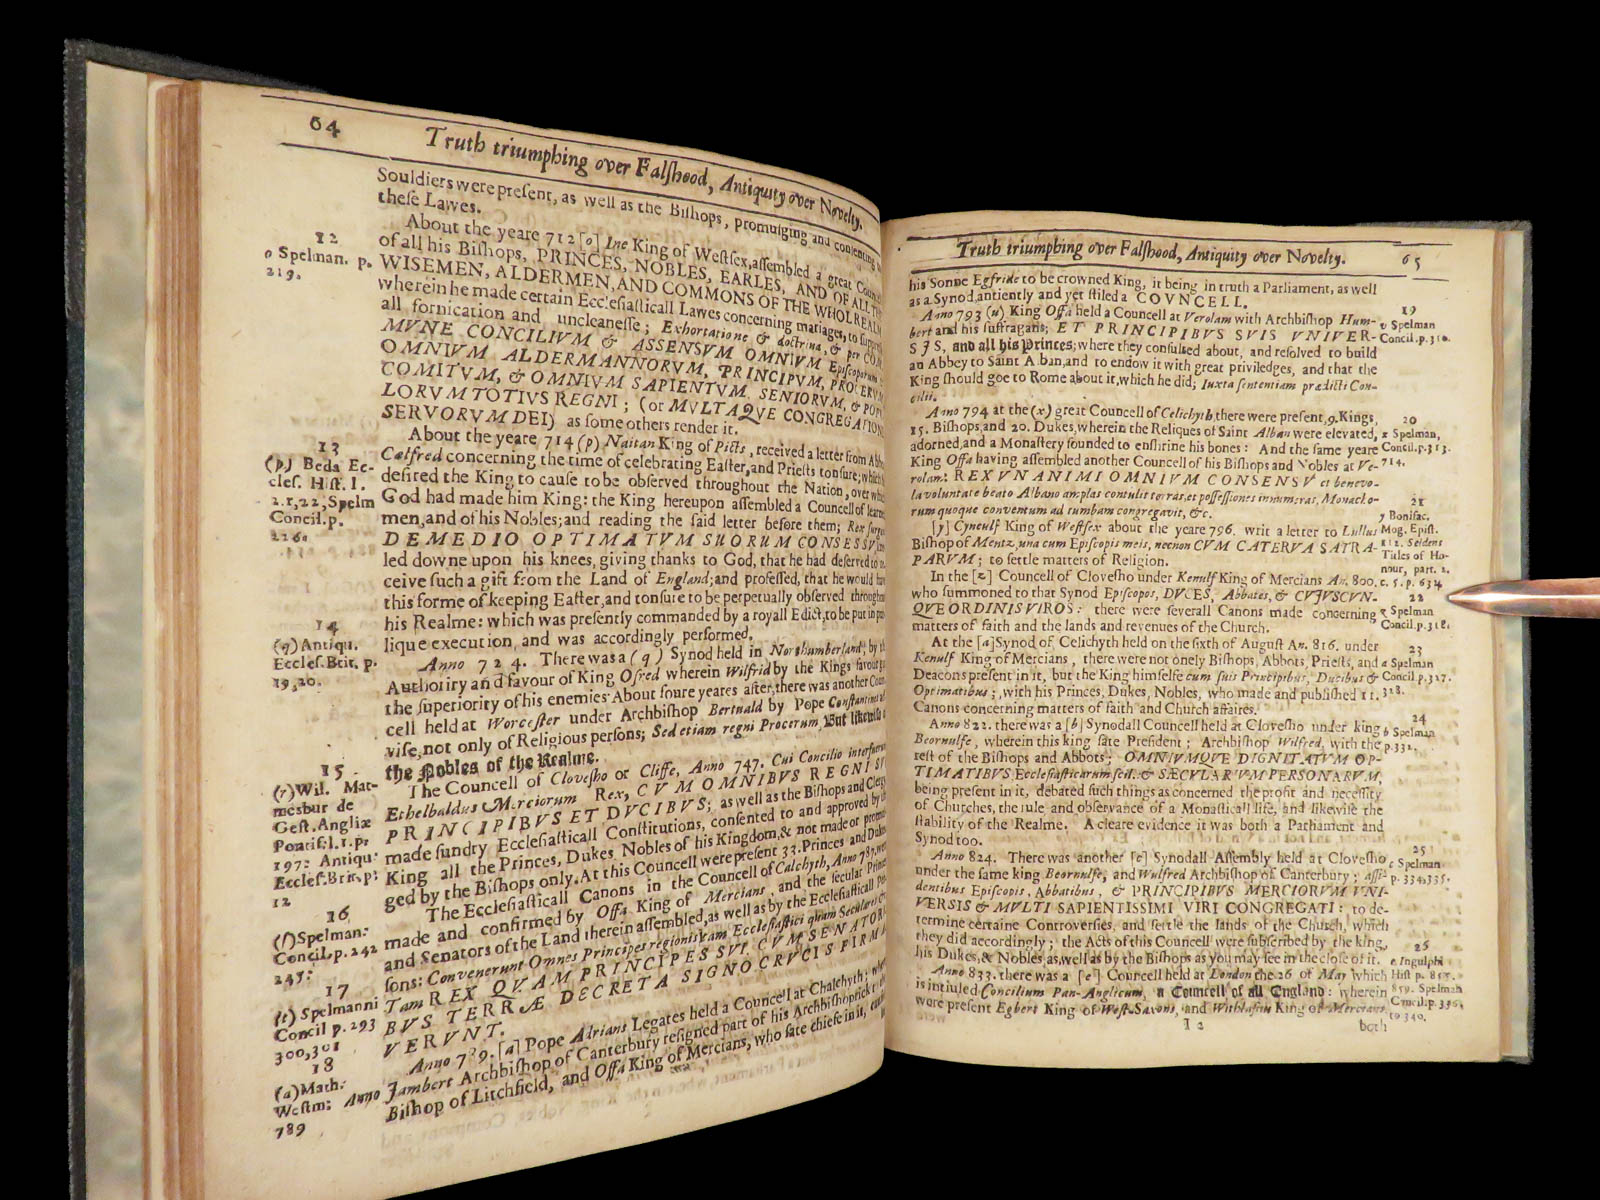 64
Truth triumphing over Falſhood, Antiquity over Novelty.
Souldiers were preſent, as well as the Biſhops, promulging and conſenting
theſe Lawes.
12
o Spelman. p.
219.
About the yeare 712 [o] Ine King of Weſtſex, aſſembled a great
of all his Biſhops, PRINCES, NOBLES, EARLES, AND OF ALL
WISEMEN, ALDERMEN, AND COMMONS OF THE WHOL REALM
wherein he made certain Eccleſiaſticall Lawes concerning mariages, to
all fornication and uncleaneſſe; Exhortatione & doctrina, & per COM-
MVNE CONCILIVM & ASSENSVM OMNIVM Epiſcoporum
OMNIVM ALDERMANNORVM, PRINCIPVM, PROCERVM
COMITVM, & OMNIVM SAPIENTVM, SENIORVM, & POPV
LORVM TOTIVS REGNI; (or MVLTAQVE CONGREGATIONE
SERVORVM DEI) as ſome others render it.
13
(p) Beda Ec-
cleſ. Hiſt. l.
2.c,22, Spelm
Concil. p.
226.
About the yeare 714 (p) Naitan King of Picts, received a letter from
Cælfred concerning the time of celebrating Eaſter, and Prieſts tonſure; which
deſired the King to cauſe to be obſerved throughout the Nation, over
God had made him King: the King hereupon aſſembled a Councell of
men, and of his Nobles; and reading the ſaid letter before them; Rex
DE MEDIO OPTIMATVM SUORUM CONSESSV,
led downe upon his knees, giving thanks to God, that he had deſerved to
ceive ſuch a gift from the Land of England; and profeſſed, that he would
this forme of keeping Eaſter, and tonſure to be perpetually obſerved
his Realme: which was preſently commanded by a royall Edict, to be put in
lique execution, and was accordingly performed.
14
(q) Antiqu.
Eccleſ. Brit. p.
19,20.
Anno 724. There was a (q) Synod held in Northumberland; by
Authority and favour of King Oſred wherein Wilfrid by the Kings favour
the ſuperiority of his enemies About foure yeares after, there was another
cell held at Worceſter under Archbiſhop Bertuald by Pope
viſe, not only of Religious perſons; Sed etiam regni Procerum, But likewiſe
the Nobles of the Realme.
15
(r) Wil. Mal-
mesbur de
Geſt. Angliæ
Pontif. l.1. p.
197: Antiqu:
Eccleſ. Brit. p:
12
The Councell of Cloveſho or Cliffe, Anno 747. Cui Concilio
Ethelbaldus Merciorum Rex, CVM OMNIBVS REGNI
PRINCIPIBVS ET DVCIBVS; as well as the Biſhops and
made ſundry Eccleſiaſticall Conſtitutions, conſented to and approved by
King all the Princes, Dukes, Nobles of his Kingdom, & not made or
ged by the Biſhops only. At this Councell were preſent 33. Princes and Dukes
16
(ſ) Spelman:
Concil, p. 242
245:
The Eccleſiaſticall Canons in the Councell of Calchyth, Anno 787,
made and confirmed by Offa King of Mercians, and the ſecular
and Senators of the Land therein aſſembled, as well as by the Eccleſiaſticall
ſons: Convenerunt Omnes Principes regionis, tam Eccleſiaſtici quam
17
(t) Spelmanni
Concil p. 293
300,301
Tam REX QVAM PRINCIPES SVI CVM
BVS TERRÆ DECRETA SIGNO CRVCIS
VERVNT.
18
(a) Math:
Weſtm: Anno
789
Anno 789. [a] Pope Adrians Legates held a Councell at Chalchyth;
Jambert Archbiſhop of Canterbury reſigned part of his
Biſhop of Litchfield, and Offa King of Mercians, who ſate chiefe in it,
Truth triumphing over Falſhood, Antiquity over Novelty.
65
his Sonne Egfride to be crowned King, it being in truth a Parliament, as well
as a Synod, antiently and yet ſtiled a COVNCELL.
19
v Spelman
Concil. p. 310.
Anno 793 (u) King Offa held a Councell at Verolam with Archbiſhop Hum-
bert and his ſuffragans; ET PRINCIPIBVS SVIS VNIVER-
SIS, and all his Princes; where they conſulted about, and reſolved to build
an Abbey to Saint Alban, and to endow it with great priviledges, and that the
King ſhould goe to Rome about it, which he did; Iuxta ſententiam prædicti Con-
cilii.
20
x Spelman,
Concil. p. 313.
714.
Anno 794 at the (x) great Councell of Celichyth, there were preſent, 9. Kings,
15. Biſhops, and 20. Dukes, wherein the Reliques of Saint Alban were elevated,
adorned, and a Monaſtery founded to enſhrine his bones: And the ſame yeare
King Offa having aſſembled another Councell of his Biſhops and Nobles at Ve-
rolam: REX VNANIMI OMNIVM CONSENSV et benevo-
la voluntate beato Albano amplas contulit terras, et poſſeſſiones innumeras, Monacho-
rum quoque conventum ad tumbam congregavit, &c.
21
y Bonifac.
Mog. Epiſt.
Seldens
Titles of Ho-
nour, part. 2.
c. 5. p. 634
[y] Cyneulf King of Weſtſex about the yeare 796. writ a letter to Lullus
Biſhop of Mentz, una cum Epiſcopis meis, necnon CVM CATERVA SATRA-
PARVM; to ſettle matters of Religion.
22
z Spelman
Concil. p. 318.
In the [z] Councell of Cloveſho under Kenulf King of Mercians An. 800.
who ſummoned to that Synod Epiſcopos, DVCES, Abbates, & CVJVSCVN-
QVE ORDINIS VIROS: there were ſeverall Canons made concerning
matters of faith and the lands and revenues of the Church.
23
a Spelman
Concil. p. 327.
328.
At the [a] Synod of Celichyth held on the ſixth of Auguſt An. 816. under
Kenulf King of Mercians, there were not onely Biſhops, Abbots, Prieſts, and
Deacons preſent in it, but the King himſelfe cum ſuis Principibus, Ducibus &
Optimatibus; with his Princes, Dukes, Nobles, who made and publiſhed 11.
Canons concerning matters of faith and Church affaires.
24
b Spelman
p. 332.
Anno 822. there was a [b] Synodall Councell held at Cloveſho under king
Beornulfe, wherein this king ſate Preſident; Archbiſhop Wilfred, with the
reſt of the Biſhops and Abbots; OMNIVMQE DIGNITATVM OP-
TIMATIBVS, Eccleſiaſticarum ſcil. & SÆCVLARVM PERSONARVM,
being preſent in it, debated ſuch things as concerned the profit and neceſſity
of Churches, the rule and obſervance of a Monaſticall life, and likewiſe the
ſtability of the Realme. A cleare evidence it was both a Parliament and
Synod too.
25
c Spelman
p. 334,335.
Anno 824. There was another [c] Synodall Aſſembly held at Cloveſho
under the ſame king Beornulfe, and Wulfred Archbiſhop of Canterbury; aſſi-
dentibus Epiſcopis, Abbatibus, & PRINCIPIBVS MERCIORVM VNI-
VERSIS & MVLTI SAPIENTISSIMI VIRI CONGREGATI: to de-
termine certaine Controverſies, and ſettle the lands of the Church, which
they did accordingly; the Acts of this Councell were ſubſcribed by the king,
his Dukes, & Nobles as well as by the Biſhops as you may ſee in the cloſe of it.
26
e Ingulphi
Hiſt p. 855.
859. Spelman
Concil. p. 336,
to 340.
Anno 833. there was a [e] Councell held at London the 26 of May which
is intiuled Concilium Pan-Anglicum, a Councell of all England: wherein
were preſent Egbert King of Weſt-Saxons, and Withlaſius King of Mercians,
I 2
both